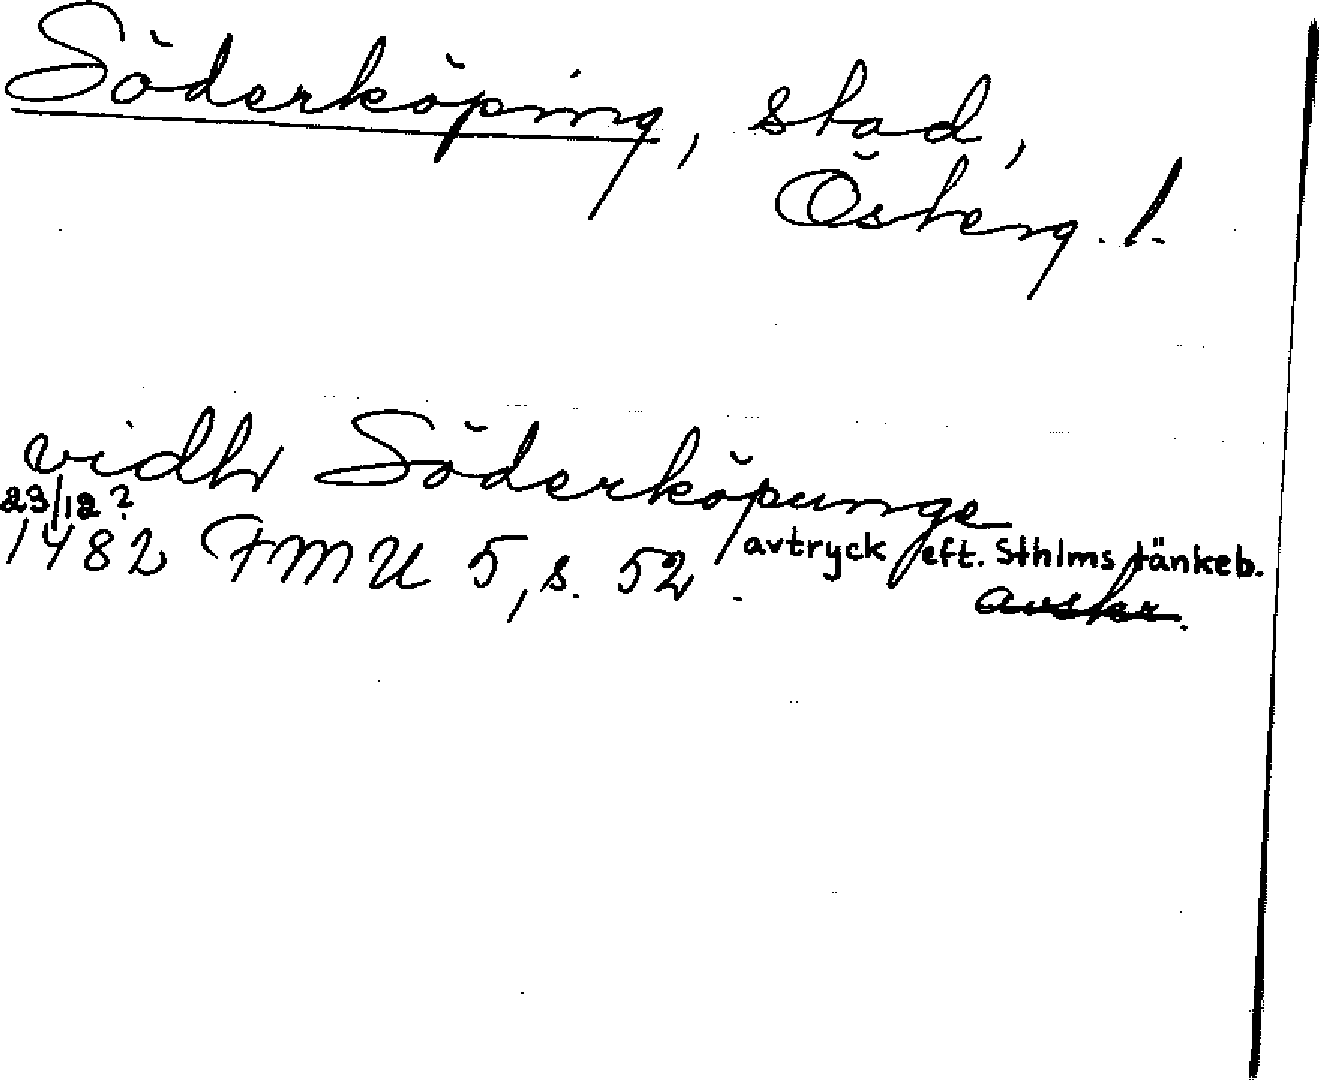 Söderköping, stad,
Österg. l.
vidh Söderköpunge
23/12 ?
1482 FMU 5, s. 52. avtryck eft. Sthlms tänkeb.
avskr.